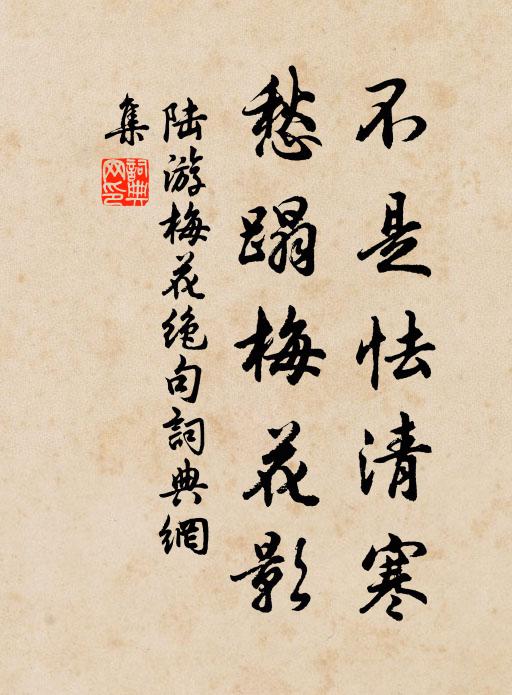 不是怯清寒
愁蹋梅花影
陆游梅花绝句詞典網
集
詞典网印